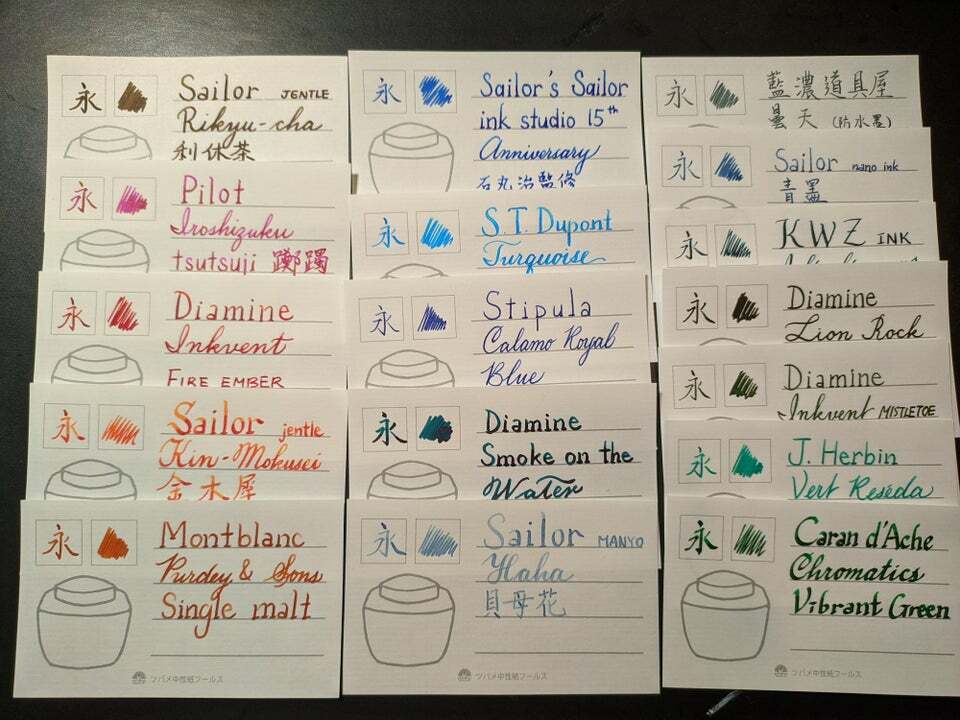 永
Sailor JENTLE
Rikyu-cha
利休茶
永
Pilot
Iroshizuku
tsutsuji 躑躅
永
Diamine
Inkvent
FIRE EMBER
永
Sailor jentle
Kin-Mokusei
金木犀
永
Montblanc
Purdey & Sons
Single malt
ツバメ中性紙フールス
永
Sailor's Sailor
ink studio 15th
Anniversary
石丸治監修
永
S.T. Dupont
Turquoise
永
Stipula
Calamo Royal
Blue
永
Diamine
Smoke on the
Water
永
Sailor MANYO
Haha
貝母花
ツバメ中性紙フールス
永
藍濃道具屋
曇天 (防水墨)
永
Sailor nano ink
青墨
永
KWZ INK
永
Diamine
Lion Rock
永
Diamine
Inkvent MISTLETOE
永
J. Herbin
Vert Réséda
永
Caran d'Ache
Chromatics
Vibrant Green
ツバメ中性紙フールス